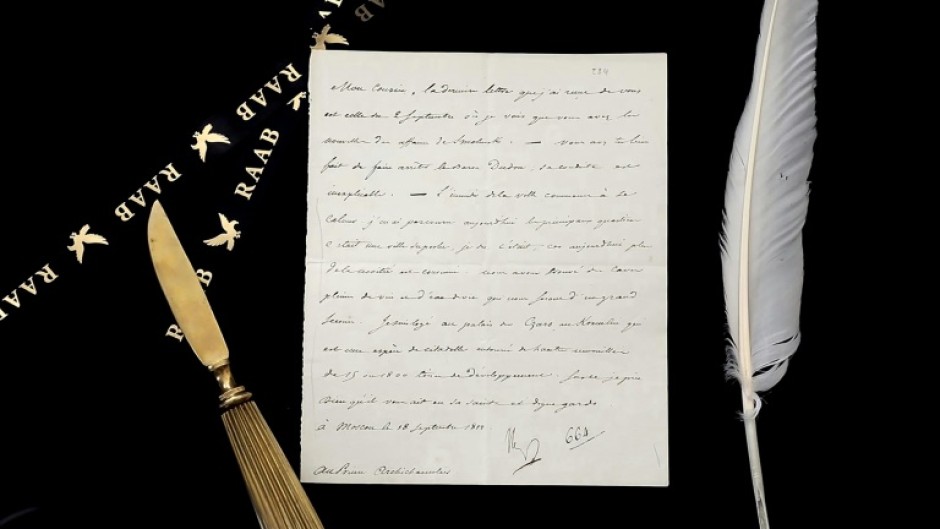 284
Mon Cousin, la dernière lettre que j'ai reçue de vous
est celle du 2 Septembre où je vois que vous avez les
nouvelles des affaires de Smolensk. — Vous avez très bien
fait de faire arrêter le Baron Dudon, sa conduite est
inexplicable. — L'incendie de la ville commence à se
calmer, j'ai parcouru aujourd'hui les principaux quartiers
c'était une ville superbe, je dis c'était, car aujourd'hui plus
de la moitié est consumée. nous avons trouvé des caves
pleines de vin et d'eau-de-vie qui nous seront d'un grand
secours. Je suis logé au palais des Czars au Kremlin qui
est une espèce de citadelle entourée de hautes murailles
de 15 ou 1800 toises de développement. Sur ce je prie
Dieu qu'il vous ait en sa sainte et digne garde.
à Moscou le 18 Septembre 1812
664
Au Prince Archichancelier
RAAB
RAAB
RAAB
RAAB
RAAB
RAA
B